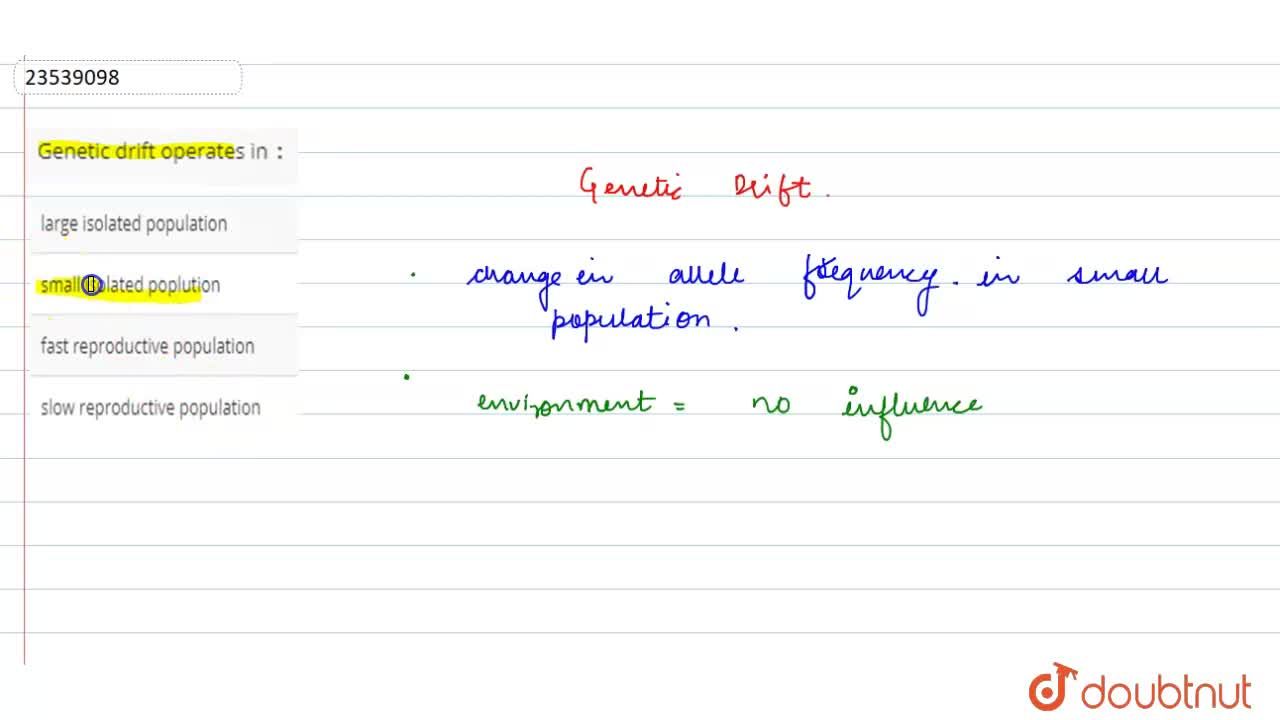 23539098
Genetic drift operates in :
large isolated population
small isolated poplution
fast reproductive population
slow reproductive population
Genetic Drift.
change in allele frequency. in small
population.
environment = no influence
doubtnut